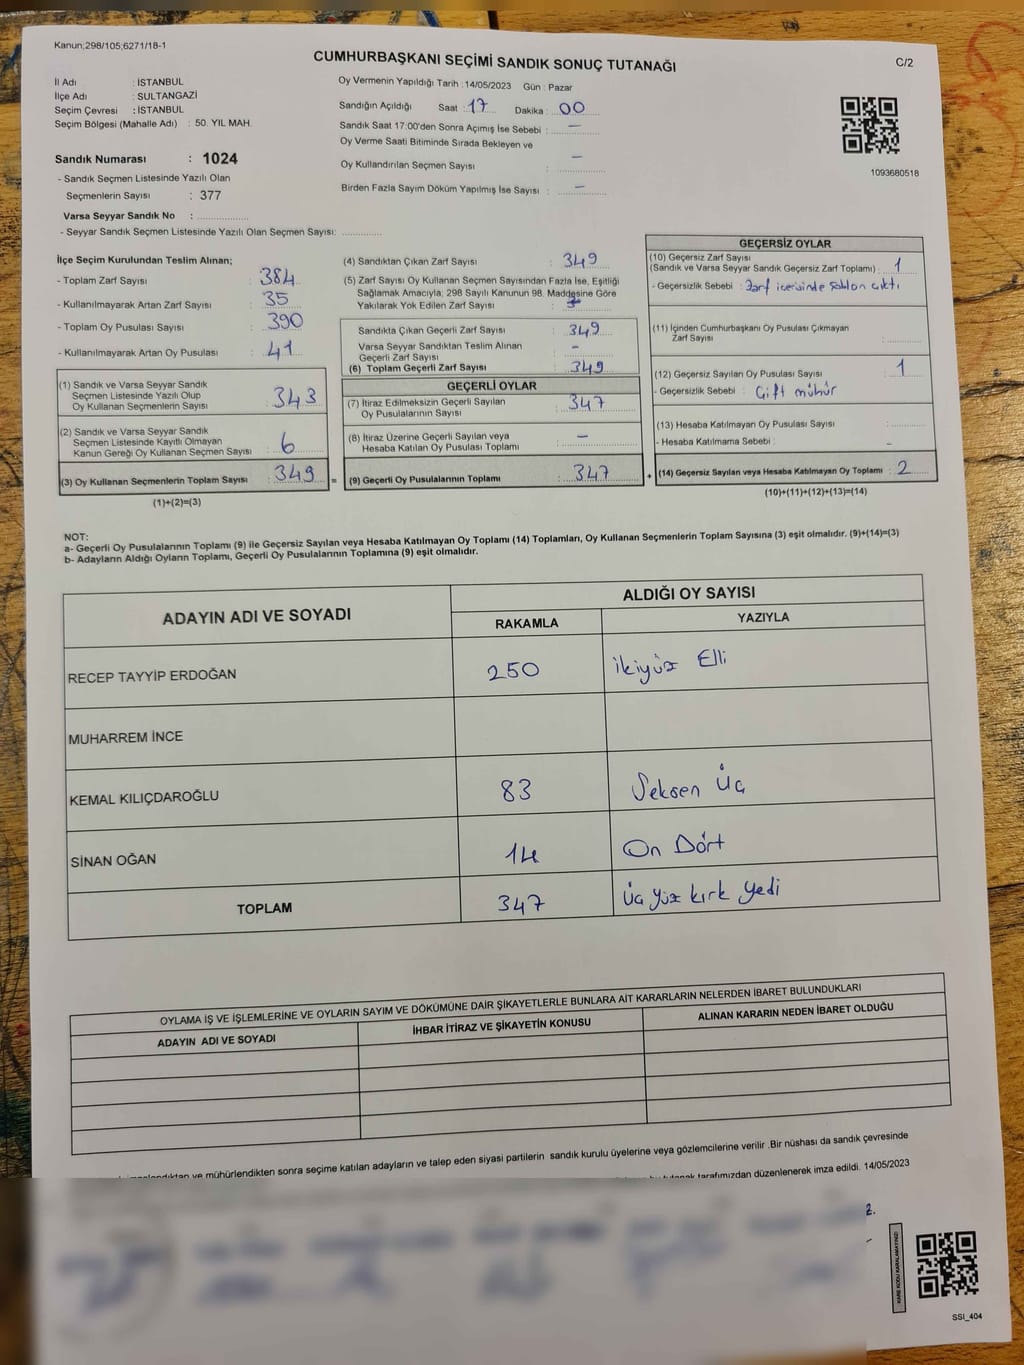 Kanun;298/105;6271/18-1
CUMHURBAŞKANI SEÇİMİ SANDIK SONUÇ TUTANAĞI
C/2
İl Adı : İSTANBUL
İlçe Adı : SULTANGAZİ
Seçim Çevresi : İSTANBUL
Seçim Bölgesi (Mahalle Adı) : 50. YIL MAH.
Sandık Numarası : 1024
- Sandık Seçmen Listesinde Yazılı Olan
Seçmenlerin Sayısı : 377
Varsa Seyyar Sandık No : ..................
- Seyyar Sandık Seçmen Listesinde Yazılı Olan Seçmen Sayısı: ..............
Oy Vermenin Yapıldığı Tarih : 14/05/2023 Gün : Pazar
Sandığın Açıldığı Saat : 17 Dakika : 00
Sandık Saat 17:00'den Sonra Açımış İse Sebebi : —
Oy Verme Saati Bitiminde Sırada Bekleyen ve
Oy Kullandırılan Seçmen Sayısı : —
Birden Fazla Sayım Döküm Yapılmış İse Sayısı : —
1093680518
İlçe Seçim Kurulundan Teslim Alınan;
- Toplam Zarf Sayısı : 384
- Kullanılmayarak Artan Zarf Sayısı : 35
- Toplam Oy Pusulası Sayısı : 390
- Kullanılmayarak Artan Oy Pusulası : 41
(1) Sandık ve Varsa Seyyar Sandık
Seçmen Listesinde Yazılı Olup
Oy Kullanan Seçmenlerin Sayısı : 343
(2) Sandık ve Varsa Seyyar Sandık
Seçmen Listesinde Kayıtlı Olmayan
Kanun Gereği Oy Kullanan Seçmen Sayısı : 6
(3) Oy Kullanan Seçmenlerin Toplam Sayısı : 349 =
(1)+(2)=(3)
(4) Sandıktan Çıkan Zarf Sayısı : 349
(5) Zarf Sayısı Oy Kullanan Seçmen Sayısından Fazla İse, Eşitliği
Sağlamak Amacıyla; 298 Sayılı Kanunun 98. Maddesine Göre
Yakılarak Yok Edilen Zarf Sayısı :
Sandıkta Çıkan Geçerli Zarf Sayısı : 349
Varsa Seyyar Sandıktan Teslim Alınan
Geçerli Zarf Sayısı : –
(6) Toplam Geçerli Zarf Sayısı : 349
GEÇERLİ OYLAR
(7) İtiraz Edilmeksizin Geçerli Sayılan
Oy Pusulalarının Sayısı : 347
(8) İtiraz Üzerine Geçerli Sayılan veya
Hesaba Katılan Oy Pusulası Toplamı : —
(9) Geçerli Oy Pusulalarının Toplamı : 347 +
GEÇERSİZ OYLAR
(10) Geçersiz Zarf Sayısı
(Sandık ve Varsa Seyyar Sandık Geçersiz Zarf Toplamı) : 1
- Geçersizlik Sebebi : Zarf icerisinde şablon çıktı
(11) İçinden Cumhurbaşkanı Oy Pusulası Çıkmayan
Zarf Sayısı : ..............
(12) Geçersiz Sayılan Oy Pusulası Sayısı : 1
- Geçersizlik Sebebi : Çift mühür
(13) Hesaba Katılmayan Oy Pusulası Sayısı : ..............
- Hesaba Katılmama Sebebi : –
(14) Geçersiz Sayılan veya Hesaba Katılmayan Oy Toplamı : 2
(10)+(11)+(12)+(13)=(14)
NOT:
a- Geçerli Oy Pusulalarının Toplamı (9) ile Geçersiz Sayılan veya Hesaba Katılmayan Oy Toplamı (14) Toplamları, Oy Kullanan Seçmenlerin Toplam Sayısına (3) eşit olmalıdır. (9)+(14)=(3)
b- Adayların Aldığı Oyların Toplamı, Geçerli Oy Pusulalarının Toplamına (9) eşit olmalıdır.
ADAYIN ADI VE SOYADI
ALDIĞI OY SAYISI
RAKAMLA YAZIYLA
RECEP TAYYİP ERDOĞAN 250 ikiyüz Elli
MUHARREM İNCE
KEMAL KILIÇDAROĞLU 83 Seksen Üç
SİNAN OĞAN 14 On Dört
TOPLAM 347 Üç yüz kırk yedi
OYLAMA İŞ VE İŞLEMLERİNE VE OYLARIN SAYIM VE DÖKÜMÜNE DAİR ŞİKAYETLERLE BUNLARA AİT KARARLARIN NELERDEN İBARET BULUNDUKLARI
ADAYIN ADI VE SOYADI İHBAR İTİRAZ VE ŞİKAYETİN KONUSU ALINAN KARARIN NEDEN İBARET OLDUĞU
ve mühürlendikten sonra seçime katılan adayların ve talep eden siyasi partilerin sandık kurulu üyelerine veya gözlemcilerine verilir .Bir nüshası da sandık çevresinde
tarafımızdan düzenlenerek imza edildi. 14/05/2023
2.
KARE KODU KARALAMAYINIZ!
SSI_404